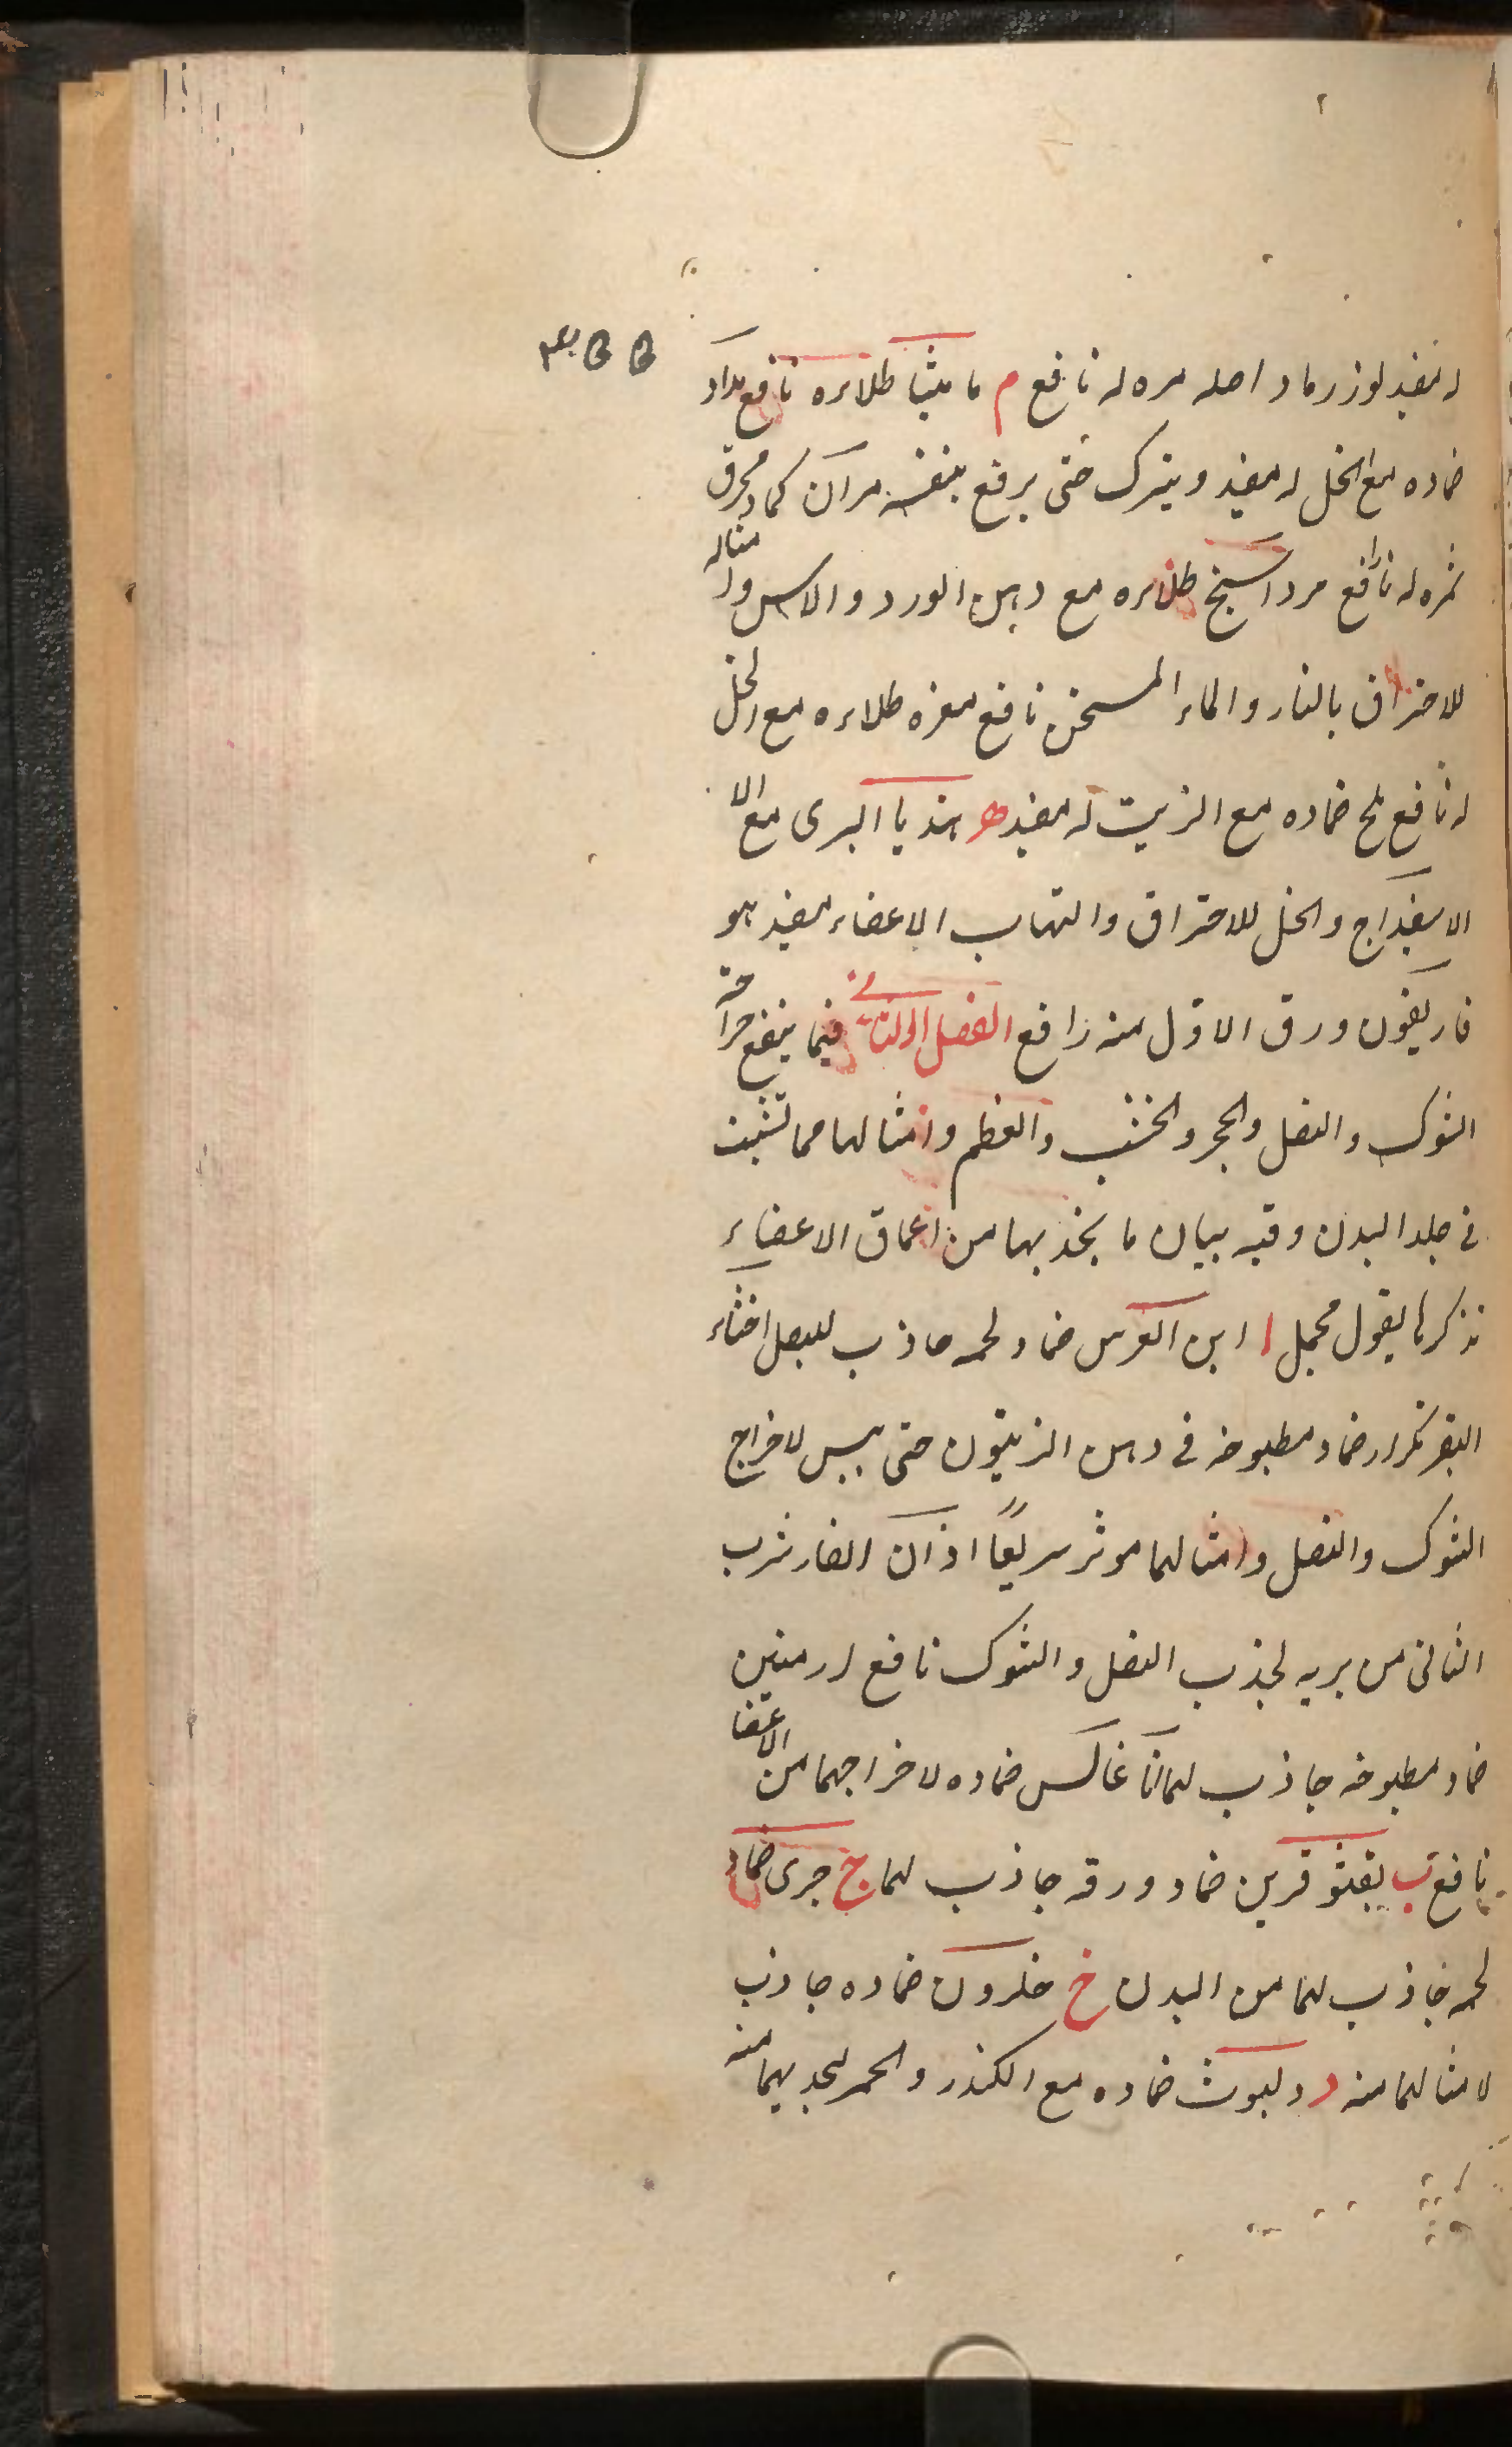 له مفيد لوز رماد اصله مره له نافع م مامیثا طلاءه نافع مداد
ضماده مع الخل له مفيد ويترك حتى يرفع بنفسه مران كماد محرق
ثمره له نافع مرداسنج طلاءه مع دهن الورد والاس ولـ مثاله
للاحتراق بالنار والماء المسخن نافع مغره طلاءه مع الخل
له نافع ملح ضماده مع الزيت له مفيد ه هندبا البرى مع الا
الاسفيداج والخل للاحتراق والتهاب الاعضاء مفيد هو
فاريقون ورق الاول منه نافع الفصل الثانى فيما ينفع جراحة
الشوك والنصل والحجر والخشب والعظم وامثالها مما تشبت
في جلد البدن وفيه بيان ما يجذبها من اعماق الاعضاء
نذكرها بقول مجمل ا ابن العرس ضماد لحمه جاذب للنصل اخثاء
البقر تكرار ضماد مطبوخه في دهن الزيتون حتى يبس لاخراج
الشوك والنصل وامثالهما موثر سريعًا اذان الفار شرب
الثانى من بريه لجذب النصل والشوك نافع ارمنين
ضماد مطبوخه جاذب لهما اناغالس ضماده لاخراجهما من الاعضا
نافع ب بقثوقرين ضماد ورقه جاذب لهما ج جرى ضماد
لحمه جاذب لهما من البدن خ خلرون ضماده جاذب
لامثالهما منه د دلبوث ضماده مع الكندر والخمر لجذبهما منه